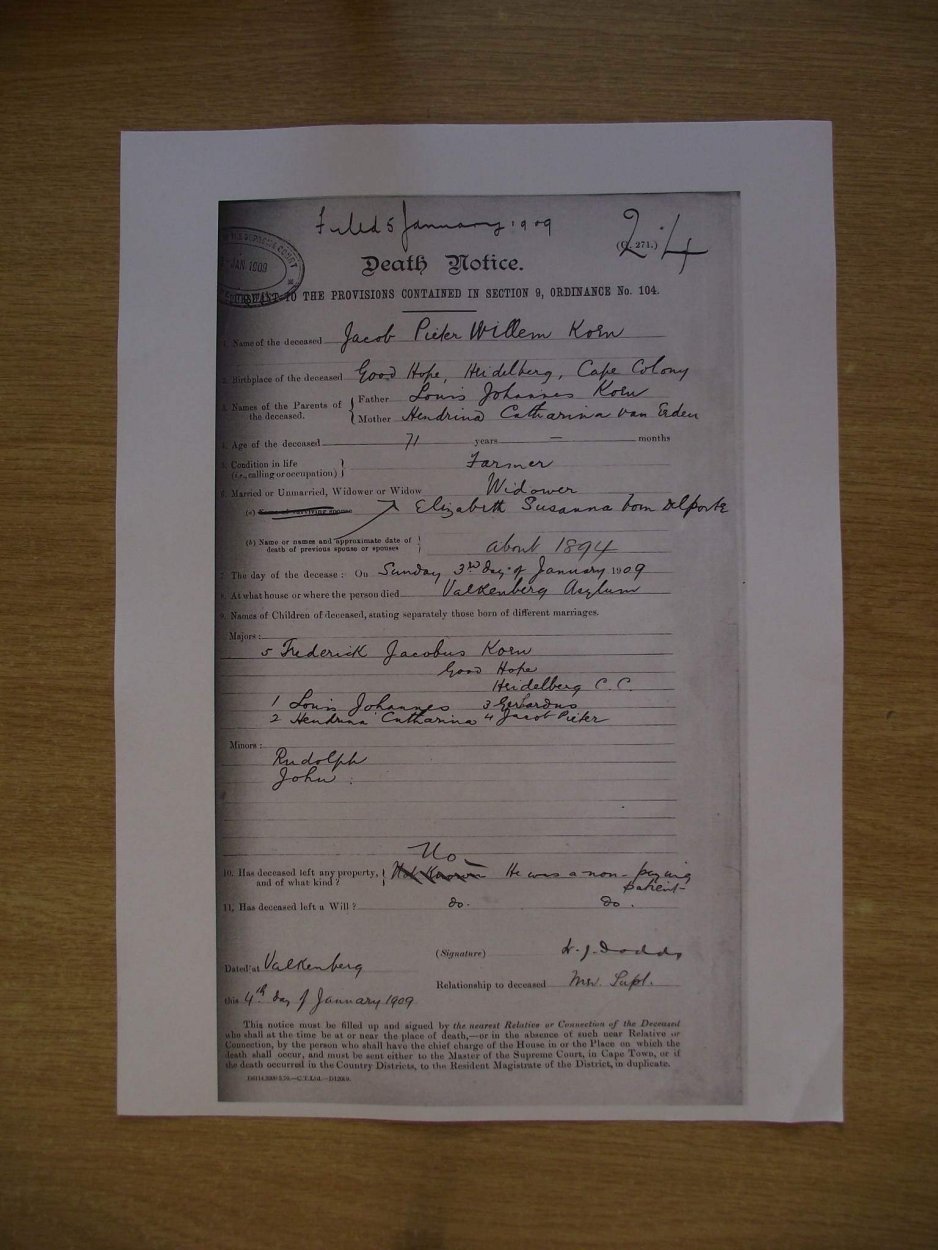 Filed 5 January 1909
(G. 271.) 2/4
SUPREME COURT
JAN 1909
Death Notice.
PURSUANT TO THE PROVISIONS CONTAINED IN SECTION 9, ORDINANCE No. 104.
1. Name of the deceased Jacob Pieter Willem Korn
2. Birthplace of the deceased Good Hope, Heidelberg, Cape Colony
3. Names of the Parents of the deceased. Father Louis Johannes Korn
Mother Hendrina Catharina van Erden
4. Age of the deceased 71 years — months
5. Condition in life (i.e., calling or occupation) Farmer
6. Married or Unmarried, Widower or Widow Widower
(a) Name of surviving spouse Elizabeth Susanna born Delporte
(b) Name or names and approximate date of death of previous spouse or spouses about 1894
7. The day of the decease: On Sunday 3rd day of January 1909
8. At what house or where the person died Valkenberg Asylum
9. Names of Children of deceased, stating separately those born of different marriages.
Majors:
5 Frederick Jacobus Korn
Good Hope
Heidelberg C.C.
1 Louis Johannes 3 Gerhardus
2 Hendrina Catharina 4 Jacob Pieter
Minors:
Rudolph
John
No
10. Has deceased left any property, and of what kind? Not Known He was a non-paying patient
11. Has deceased left a Will? do. do.
(Signature) W. J. Dodds
Dated at Valkenberg
Relationship to deceased Med. Supt.
this 4th day of January 1909
This notice must be filled up and signed by the nearest Relative or Connection of the Deceased
who shall at the time be at or near the place of death,—or in the absence of such near Relative or
Connection, by the person who shall have the chief charge of the House in or the Place on which the
death shall occur, and must be sent either to the Master of the Supreme Court, in Cape Town, or if
the death occurred in the Country Districts, to the Resident Magistrate of the District, in duplicate.